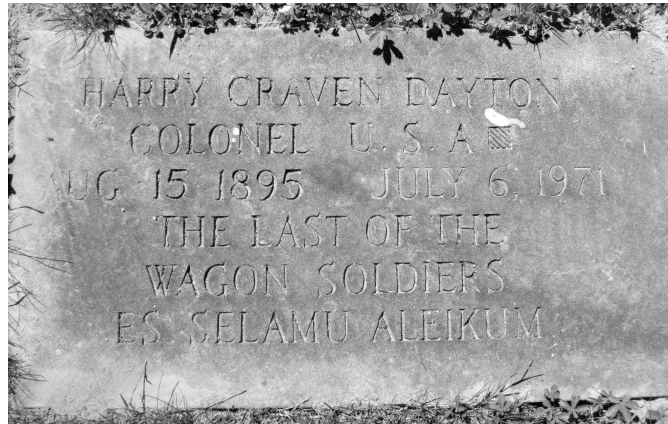 HARRY CRAVEN DAYTON
COLONEL U.S.A
AUG 15 1895 JULY 6, 1971
THE LAST OF THE
WAGON SOLDIERS
ES SELAMU ALEIKUM